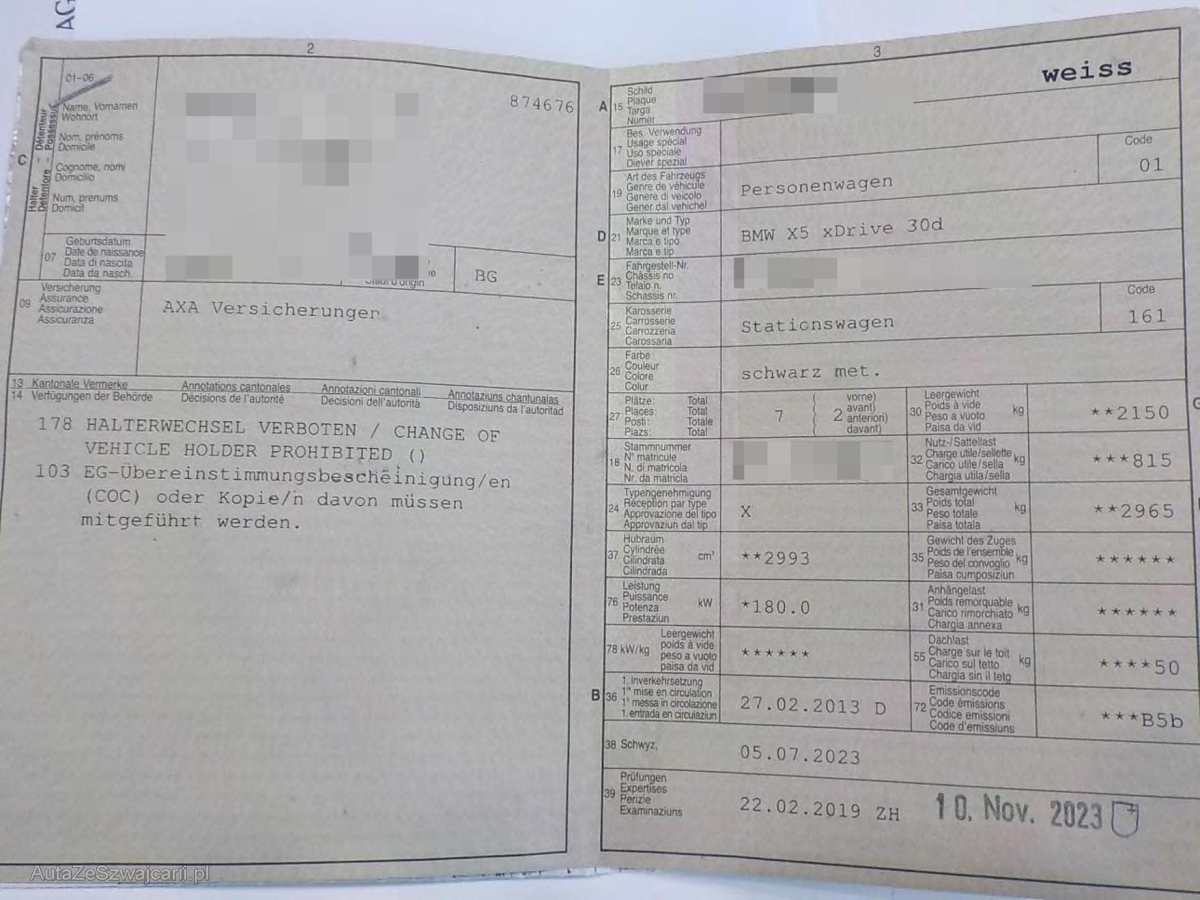 AG
2
01-06
874676
Name, Vornamen
Wohnort
Nom, prénoms
Domicile
Cognome, nomi
Domicilio
Num, prenums
Domicil
C
Halter - Détenteur
Detentore - Possessur
07
Geburtsdatum
Date de naissance
Data di nascita
Data da nasch.
BG
09
Versicherung
Assurance
Assicurazione
Assicuranza
AXA Versicherunger
13 Kantonale Vermerke Annotations cantonales Annotazioni cantonali Annotaziuns chantunalas
14 Verfügungen der Behörde Décisions de l'autorité Decisioni dell'autorità Disposiziuns da l'autoritad
178 HALTERWECHSEL VERBOTEN / CHANGE OF
VEHICLE HOLDER PROHIBITED ()
103 EG-Übereinstimmungsbescheinigung/en
(COC) oder Kopie/n davon müssen
mitgeführt werden.
3
weiss
A 15
Schild
Plaque
Targa
Numer
17
Bes. Verwendung
Usage spécial
Uso speciale
Diever spezial
19
Art des Fahrzeugs
Genre de véhicule
Genere di veicolo
Gener dal vehichel
Personenwagen
Code
01
D 21
Marke und Typ
Marque et type
Marca e tipo
Marca e tip
BMW X5 xDrive 30d
E 23
Fahrgestell-Nr.
Châssis no
Telaio n.
Schassis nr.
25
Karosserie
Carrosserie
Carrozzeria
Carossaria
Stationswagen
Code
161
26
Farbe
Couleur
Colore
Colur
schwarz met.
27
Plätze: Total
Places: Total
Posti: Totale
Plazs: Total
7
2
vorne)
avant)
anteriori)
davant)
30
Leergewicht
Poids à vide
Peso a vuoto
Paisa da vid
kg
**2150
18
Stammnummer
N° matricule
N. di matricola
Nr. da matricla
32
Nutz-/Sattellast
Charge utile/sellette
Carico utile/sella
Chargia utila/sella
kg
***815
24
Typengenehmigung
Réception par type
Approvazione del tipo
Approvaziun dal tip
X
33
Gesamtgewicht
Poids total
Peso totale
Paisa totala
kg
**2965
37
Hubraum
Cylindrée
Cilindrata
Cilindrada
cm³
**2993
35
Gewicht des Zuges
Poids de l'ensemble
Peso del convoglio
Paisa cumposiziun
kg
******
76
Leistung
Puissance
Potenza
Prestaziun
kW
*180.0
31
Anhängelast
Poids remorquable
Carico rimorchiato
Chargia annexa
kg
******
78 kW/kg
Leergewicht
poids à vide
peso a vuoto
paisa da vid
******
55
Dachlast
Charge sur le toit
Carico sul tetto
Chargia sin il tetg
kg
****50
B 36
1. Inverkehrsetzung
1re mise en circulation
1a messa in circolazione
1. entrada en circulaziun
27.02.2013 D
72
Emissionscode
Code émissions
Codice emissioni
Code d'emissiuns
***B5b
38 Schwyz,
05.07.2023
39
Prüfungen
Expertises
Perizie
Examinaziuns
22.02.2019 ZH
10. Nov. 2023
AutaZeSzwajcarii.pl